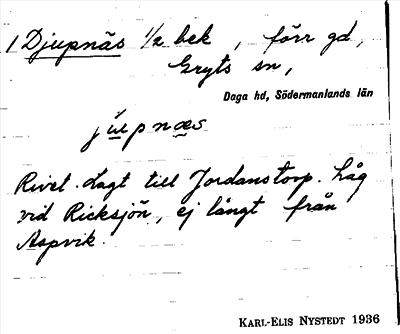 1 Djupnäs 1/2 bek , förr gd,
Gryts sn,
Daga hd, Södermanlands län
jupnæs
Rivet. Lagt till Jordanstorp. Låg
vid Ricksjön, ej långt från
Aspvik.
KARL-ELIS NYSTEDT 1936